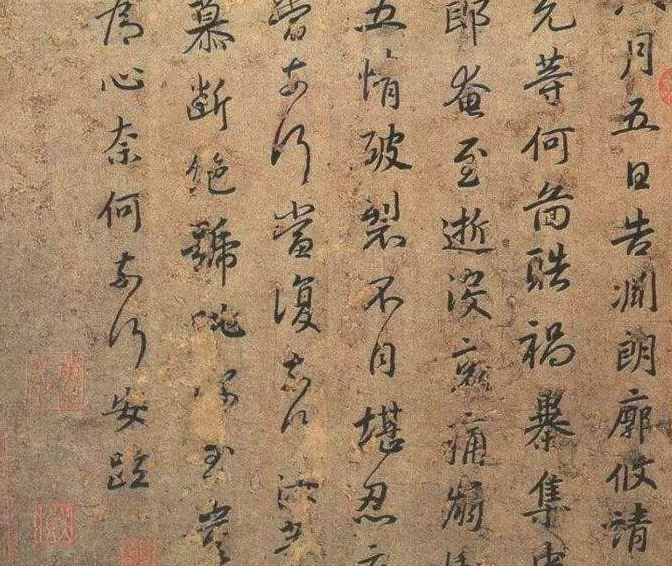 月五日告淵朗廓攸靖
允等何圖酷禍暴集
郎奄至逝沒哀痛崩
五情破裂不自堪忍
當奈何當復奈何汝等
慕斷絕號咷深至豈
為心奈何奈何安疏